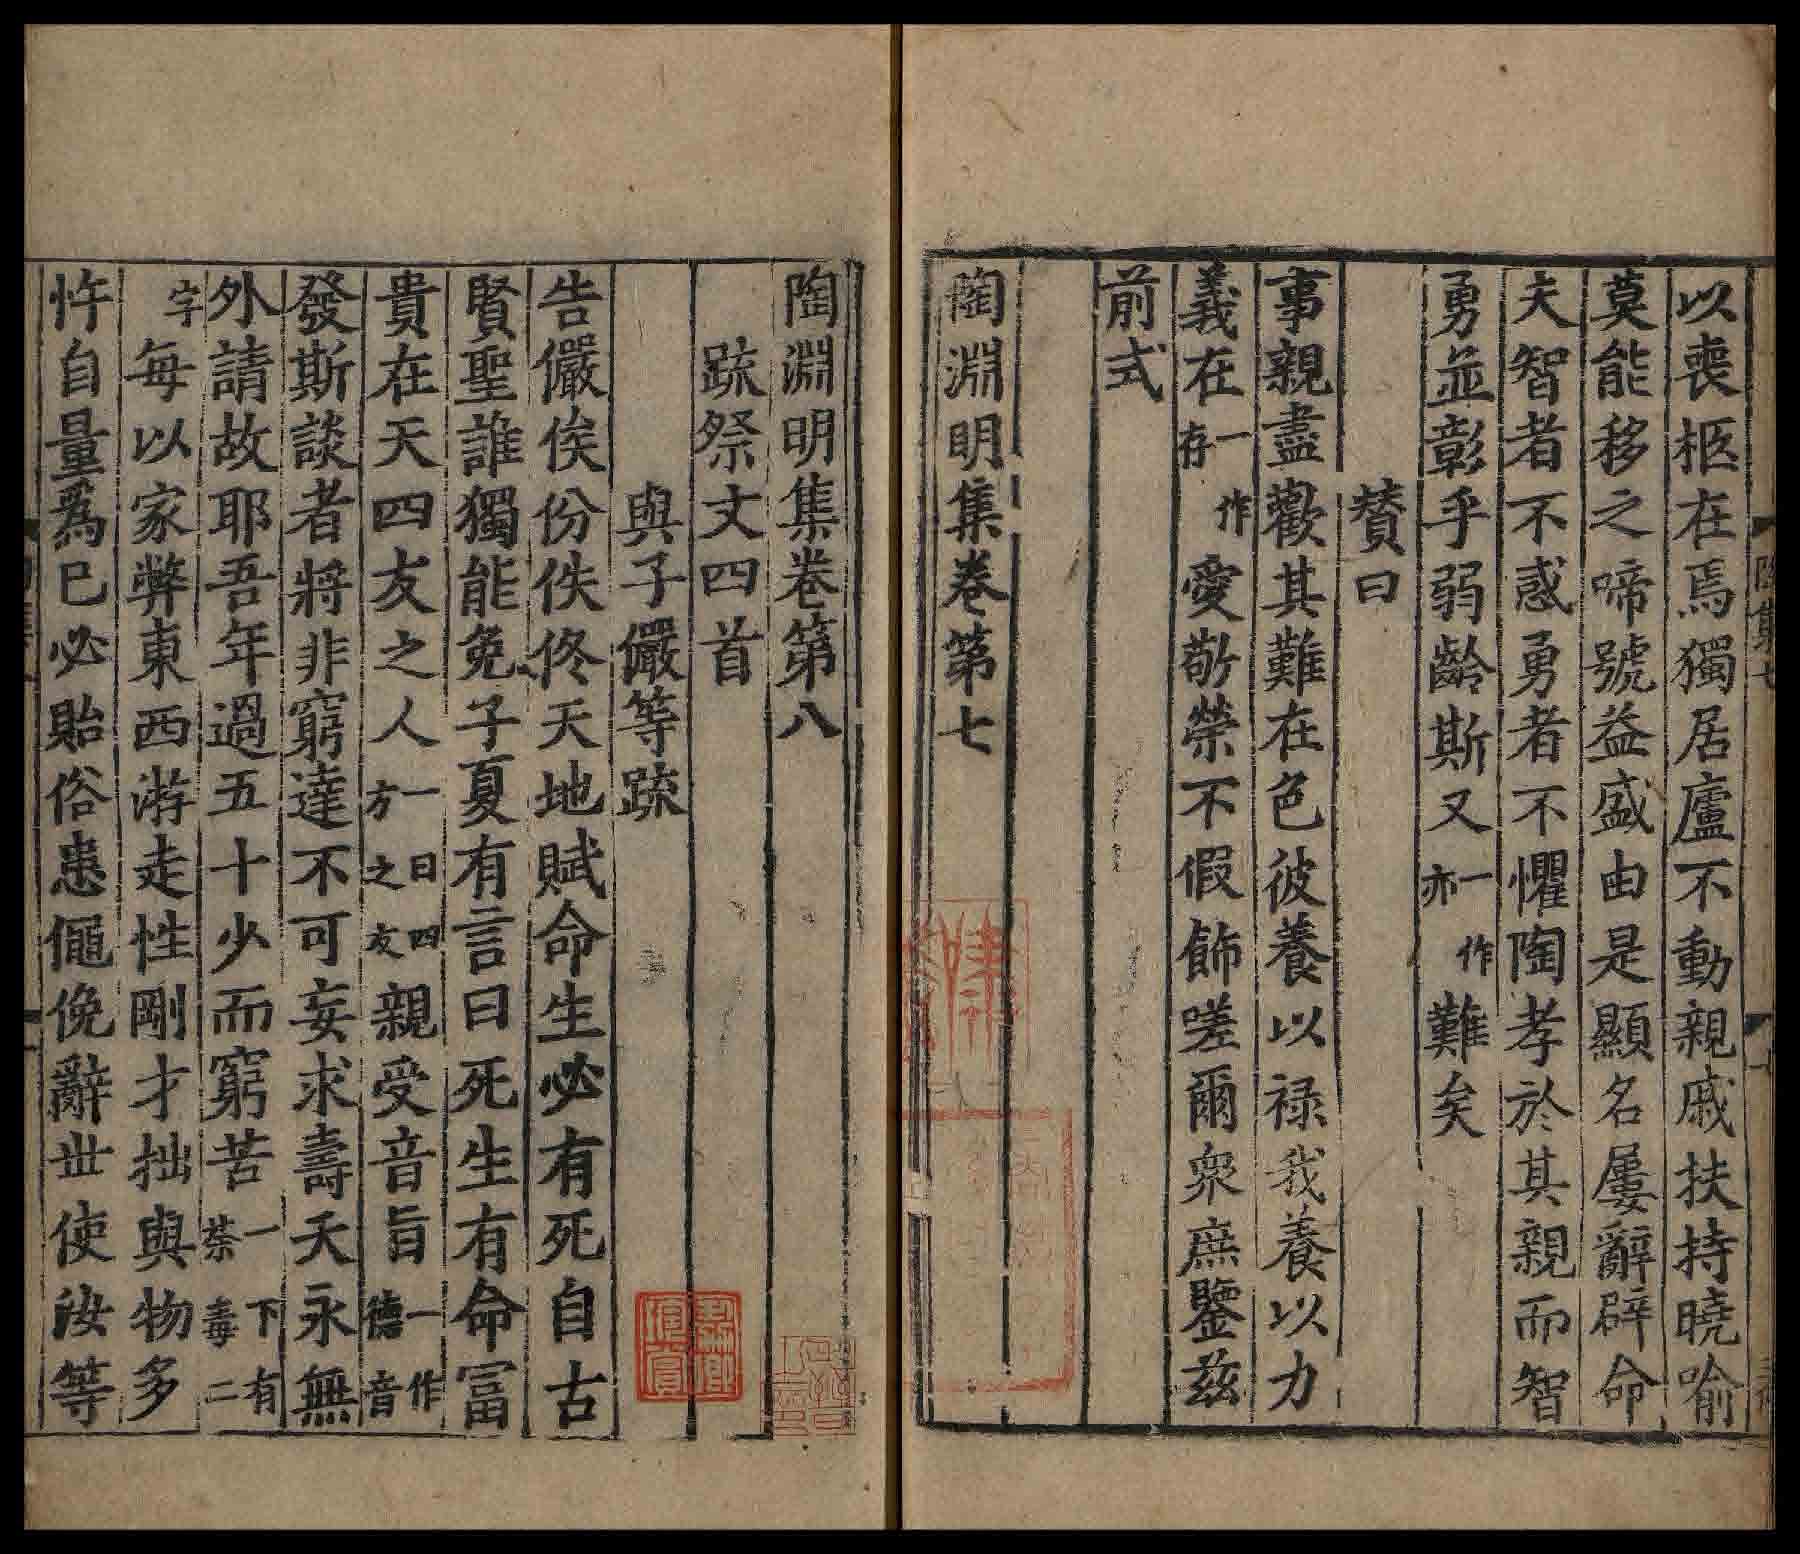 以喪柩在焉獨居廬不動親戚扶持曉喻
莫能移之啼號益盛由是顯名屢辭辟命
夫智者不惑勇者不懼陶孝於其親而智
勇並彰乎弱齡斯又一作亦難矣
贊曰
事親盡歡其難在色彼養以祿我養以力
義在一作存愛敬榮不假飾嗟爾衆庶鑒茲
前式
陶淵明集卷第七
陶淵明集卷第八
疏祭文四首
與子儼等疏
告儼俟份佚佟天地賦命生必有死自古
賢聖誰獨能免子夏有言曰死生有命富
貴在天四友之人一曰四方之友親受音旨一作德音
發斯談者將非窮達不可妄求壽夭永無
外請故耶吾年過五十少而窮苦一下有荼毒二
字每以家弊東西游走性剛才拙與物多
忤自量爲已必貽俗患僶俛辭世使汝等